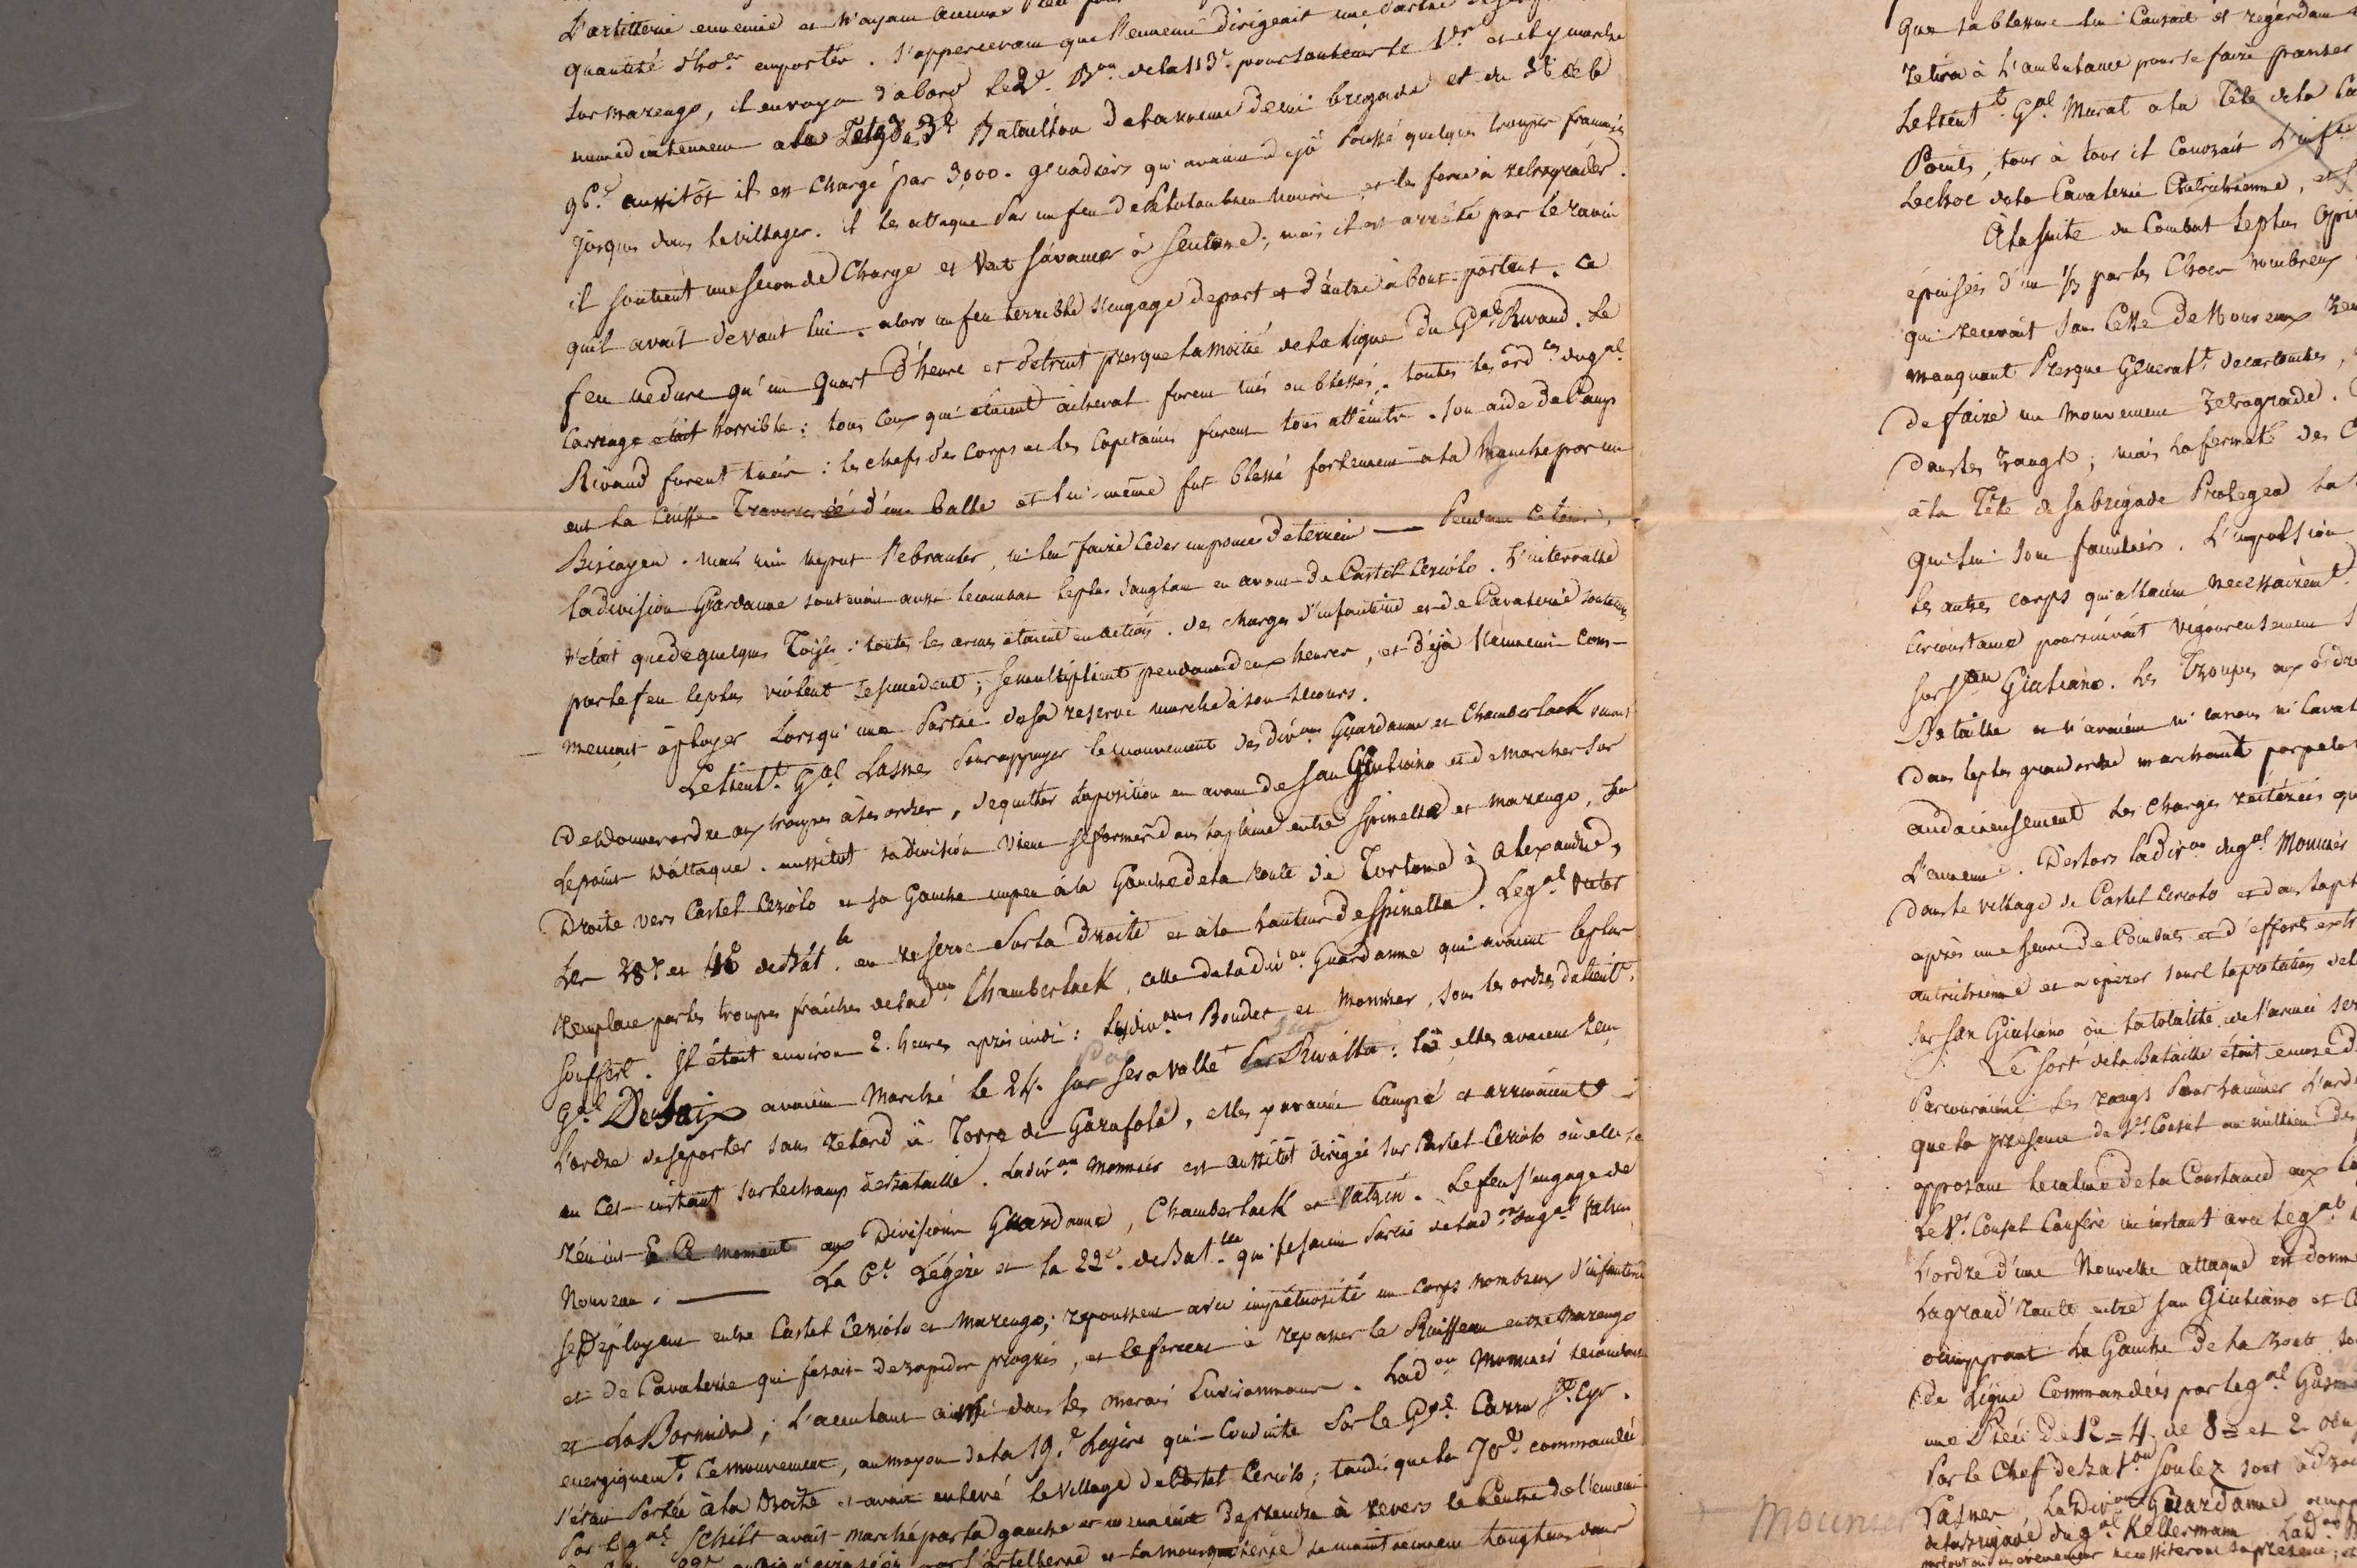 L'artillerie ennemie et n'ayant aucune
quantité d'ho.es emporter. S'appercevant que l'ennemi dirigeait une partie
sur marengo, il envoya d'abord le 2.e B.on de la 43.e pour soutenir le 1.er et il y marche
immédiatement a la Tete du 3.e Bataillon de la meme demi brigade et du 3.e de la
96.e aussitôt il est chargé par 3,000. grenadiers qui avaient déjà poussé quelques troupes françaises
jusques dans le village. il les attaque par un feu de peloton bien nourri et les force à retrograder.
il soutient une seconde Charge et veut s'avancer à son tour; mais il est arrêté par le ravin
qu'il avait devant lui. alors un feu terrible s'engage de part et d'autre à bout portant. ce
feu ne dure qu'un quart d'heure et détruit presque la moitié de la ligne du G.al Rivaud. Le
Carnage était horrible: tous ceux qui étaient àcheval furent tués ou blessés. toutes les ord.ces du g.al
Rivaud furent tuées: les chefs des corps et les Capitaines furent tous atteints. son aide de Camp
eut la Cuisse Traversée d'une balle et lui-même fut blessé fortement a la hanche par un
Biscayen. mais rien ne put l'ebranler, ni lui faire ceder un pouce de terrein — Pendant ce tems,
la division Gardanne soutenait aussi le combat le plus sanglant en avant de Castel Ceriolo. L'intervalle
n'était que de quelques Toises: toutes les armes étaient en action. des charges d'infanterie et de Cavalerie soutenues
par le feu le plus violent se succedent; se multiplient pendant deux heures, et déjà l'ennemi com-
mençait à ployer lorsqu'une Partie de sa reserve marche à son secours.
Le Lieut.t G.al Lasnes pour appuyer le mouvement des div.ons Guardanne et Chamberlack vient
de donner ordre aux troupes à ses ordres, de quitter la position en avant de San Giuliano et de marcher sur
le point d'attaque. aussitot sa division vient se former dans la plaine entre Spinetta et marengo, sa
Droite vers Castel Ceriolo et sa Gauche un peu à la Gauche de la Route de Tortone à alexandrie,
Les 28.e et 40.e de Bat.lle en reserve sur la Droite et à la hauteur de Spinetta. Le g.al Victor
remplace par les troupes fraîches de la d.on Chamberlack, celle de la div.on Guardanne qui avaient le plus
souffert. Il était environ 2. heures après midi: Les div.ons Boudet et Monnier, sous les ordres du Lieut.t
G.al Desaix avaient marché le 24. sur Seravalle par Rivalta: là elles avaient reçu
l'ordre de se porter sans retard à Torre di Garafolo, elles y avaient campé et arrivaient
en cet instant sur le champ de Bataille. La div.on Monnier est aussitôt dirigée sur Castel Ceriolo où elle se
réunit à ce moment aux Divisions Guardanne, Chamberlack et Vatrin. Le feu s'engage de
Nouveau. — La 6.e Légère et la 22.e de Bat.lle qui fesaient partie de la d.on du g.al Vatrin
se déployent entre Castel Ceriolo et Marengo; repoussent avec impétuosité un corps nombreux d'infanterie
et de Cavalerie qui fesait de rapides progrès, et le forcent à repasser le Ruisseau entre Marengo
et La Bormida; l'acculant ainsi dans les marais Environnans. La d.on Monnier secondant
energiquem.t ce mouvement, au moyen de la 19.e Légère qui Conduite par le G.al Carra S.t Cyr.
s'était portée à la Droite et avait enlevé le village de Castel Ceriolo; tandis que la 70.e commandée
par le g.al Schilt avait marché par la gauche et menaçait de prendre à revers le centre de l'ennemi
par l'artillerie et la mousqueterie se maintiennent toujours dans
que sa blessure lui causait et regardant
retira à l'ambulance pour se faire panser
Le Lieut.t G.al Murat a la Tête de la Ca
Points, tour à tour il couvrait l'inf.rie
le choc de la Cavalerie Autrichienne, et
À la suite du Combat le plus opi
épuisées d'un 1/3 par les Chocs nombreux
qui recevait sans cesse de Nouveaux ren
manquant Presque General.t de cartouches,
de faire un mouvement retrograde.
dans les rangs; mais la fermeté des C
à la Tête de sa brigade Protegea la
qui lui sont familiers. L'impulsion
les autres corps qui allaient necessairem.t
circonstance poursuivait vigoureusement
sur S.an Giuliano. Les Troupes aux ordre
Bataille et n'avaient ni canons ni Caval
dans le plus grand ordre marchant par pelot
audacieusement les charges réitérées qu
L'ennemi. Dès lors la div.on du g.al Monnier
dans le village de Castel Ceriolo et dans la pl
après une heure de Combats et d'efforts extr
autrichienne et a opérer sous la protection de l
sur San Giuliano où la totalité de l'armée se r
Le sort de la Bataille était encore d
Parcouraient les rangs Pour ranimer l'ard
que la présence du 1.er Consul au milieu des
opposant le calme de la Constance aux
Le 1.er Consul Confère un instant avec le g.al
L'ordre d'une Nouvelle attaque est donné
la grand' route entre San Giuliano et
occuppant la Gauche de la route
de Ligne Commandées par le g.al
une Pièce de 12 = 4. de 8 = et 2. obu
Par le Chef de Bat.on Soulez sont à Droi
Lasnes. La Div.on Guardanne
de la Brigade du g.al Kellermann. La d.on B
necessiteront sa présence
Mounier